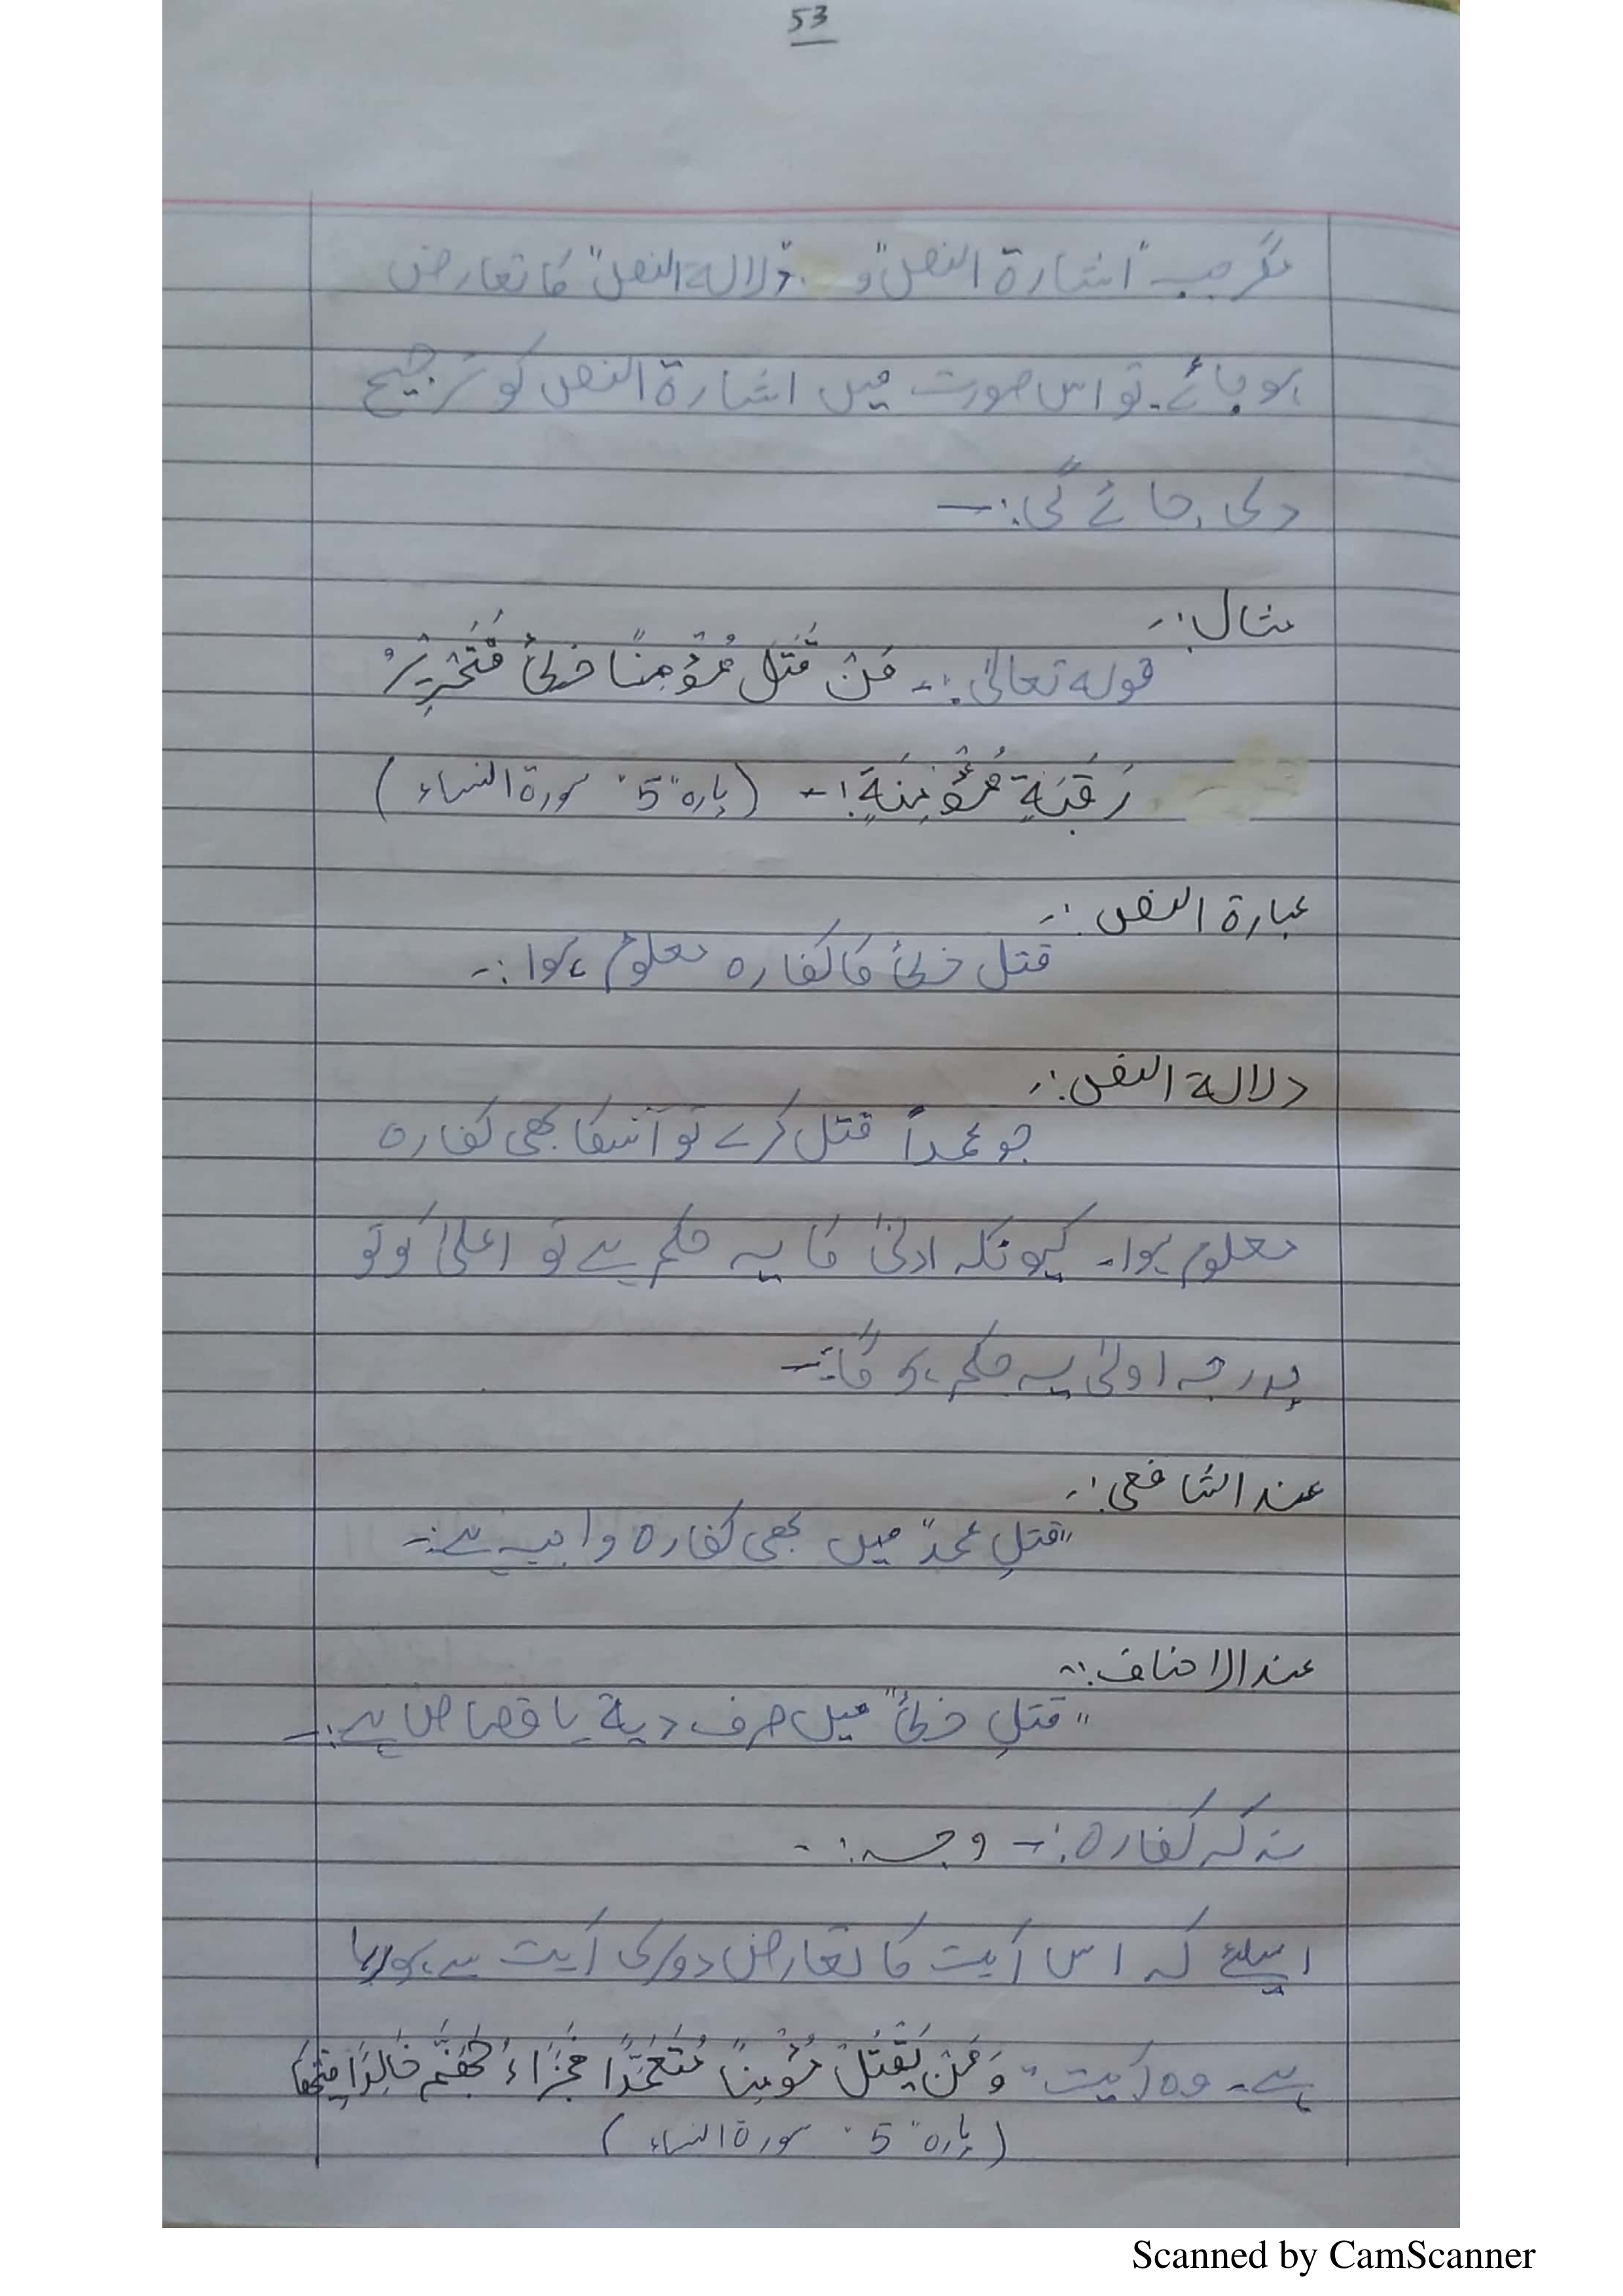 53
مگر جب "اشارۃ النص" و "دلالۃ النص" کا تعارض
ہو جائے۔ تو اس صورت میں اشارۃ النص کو ترجیح
دی جائے گی:۔
مثال:۔
قولہ تعالیٰ:۔ مَنْ قَتَلَ مُؤْمِنًا خطئً فَتَحْرِیْرُ
رَقَبَةٍ مُّؤْمِنَةٍ:۔ (پارہ "5" سورۃ النساء)
عبارۃ النص:۔
قتل خطئ کا کفارہ معلوم ہوا:۔
دلالۃ النص:۔
جو عمداً قتل کرے تو اسکا بھی کفارہ
معلوم ہوا۔ کیونکہ ادنیٰ کا یہ حکم ہے تو اعلیٰ کو تو
بدرجہ اولیٰ یہ حکم ہو گا:۔
عند الشافعی:۔
"قتلِ عمد" میں بھی کفارہ واجب ہے:۔
عند الاحناف:۔
"قتلِ خطئ" میں صرف دیۃ یا قصاص ہے:۔
نہ کہ کفارہ:۔ وجہ:۔
اسلئے کہ اس آیت کا تعارض دوسری آیت سے ہو رہا
ہے۔ وہ آیت "وَمَنْ یَقْتُلْ مُؤْمِنًا مُتَعَمِّدًا فَجَزَاءُ جَهَنَّم خَالِدًا فِیْهَا
(پارہ "5" سورۃ النساء)
Scanned by CamScanner